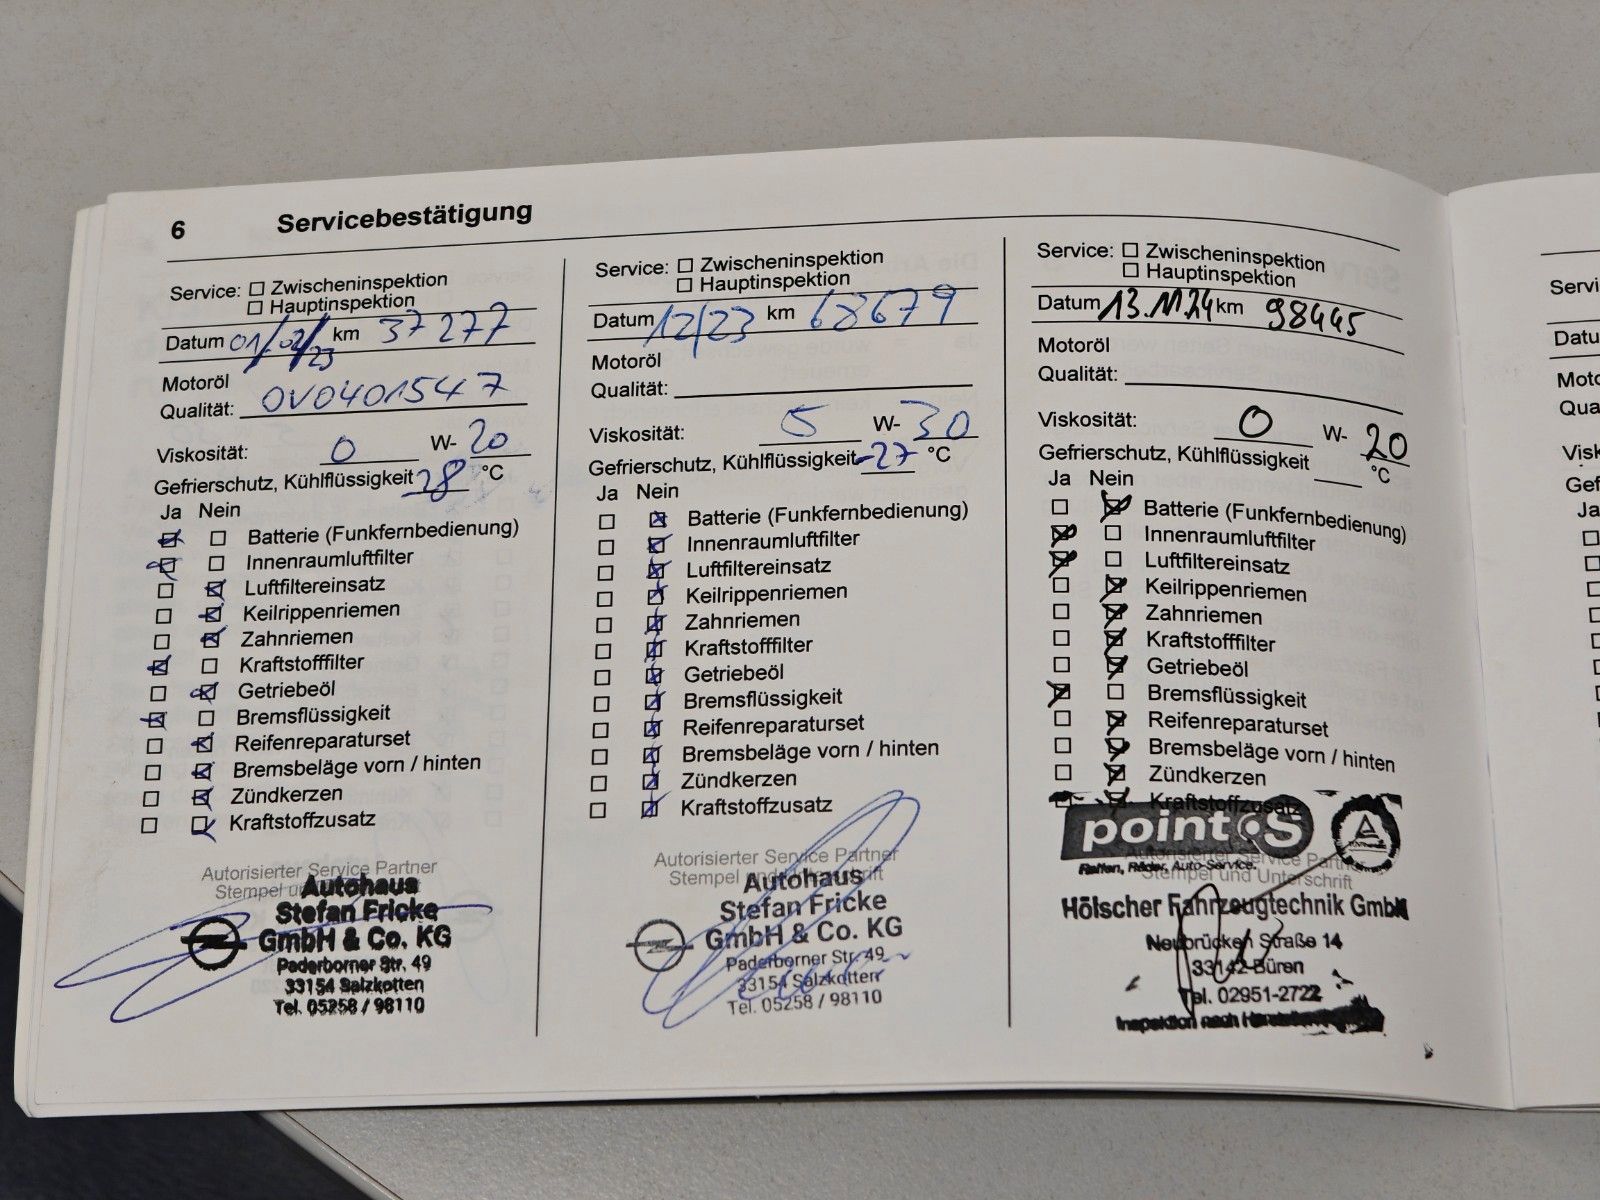 6 Servicebestätigung
Service: ☐ Zwischeninspektion
☐ Hauptinspektion
Datum 01/02/23 km 37 277
Motoröl
Qualität: 0V0401547
Viskosität: 0 W- 20
Gefrierschutz, Kühlflüssigkeit 28 °C
Ja Nein
☒ ☐ Batterie (Funkfernbedienung)
☒ ☐ Innenraumluftfilter
☐ ☒ Luftfiltereinsatz
☐ ☒ Keilrippenriemen
☐ ☒ Zahnriemen
☒ ☐ Kraftstofffilter
☐ ☒ Getriebeöl
☒ ☐ Bremsflüssigkeit
☐ ☒ Reifenreparaturset
☐ ☒ Bremsbeläge vorn / hinten
☐ ☒ Zündkerzen
☐ ☒ Kraftstoffzusatz
Autorisierter Service Partner
Stempel
Autohaus
Stefan Fricke
GmbH & Co. KG
Paderborner Str. 49
33154 Salzkotten
Tel. 05258 / 98110
Service: ☐ Zwischeninspektion
☐ Hauptinspektion
Datum 12/23 km 68679
Motoröl
Qualität:
Viskosität: 5 W- 30
Gefrierschutz, Kühlflüssigkeit -27 °C
Ja Nein
☐ ☒ Batterie (Funkfernbedienung)
☐ ☒ Innenraumluftfilter
☐ ☒ Luftfiltereinsatz
☐ ☒ Keilrippenriemen
☐ ☒ Zahnriemen
☐ ☒ Kraftstofffilter
☐ ☒ Getriebeöl
☐ ☒ Bremsflüssigkeit
☐ ☒ Reifenreparaturset
☐ ☒ Bremsbeläge vorn / hinten
☐ ☒ Zündkerzen
☐ ☒ Kraftstoffzusatz
Autorisierter Service Partner
Stempel und Unterschrift
Autohaus
Stefan Fricke
GmbH & Co. KG
Paderborner Str. 49
33154 Salzkotten
Tel. 05258 / 98110
Service: ☐ Zwischeninspektion
☐ Hauptinspektion
Datum 13.11.24 km 98445
Motoröl
Qualität:
Viskosität: 0 W- 20
Gefrierschutz, Kühlflüssigkeit °C
Ja Nein
☐ ☒ Batterie (Funkfernbedienung)
☒ ☐ Innenraumluftfilter
☒ ☐ Luftfiltereinsatz
☐ ☒ Keilrippenriemen
☐ ☒ Zahnriemen
☐ ☒ Kraftstofffilter
☐ ☒ Getriebeöl
☒ ☐ Bremsflüssigkeit
☐ ☒ Reifenreparaturset
☐ ☒ Bremsbeläge vorn / hinten
☐ ☒ Zündkerzen
☐ ☒ Kraftstoffzusatz
point S
Reifen, Räder, Auto-Service.
Autorisierter Service Partner
Stempel und Unterschrift
Hölscher Fahrzeugtechnik GmbH
Neubrücken Straße 14
33142 Büren
Tel. 02951-2722
Inspektion nach
Servi
Datu
Moto
Qua
Visk
Gef
Ja